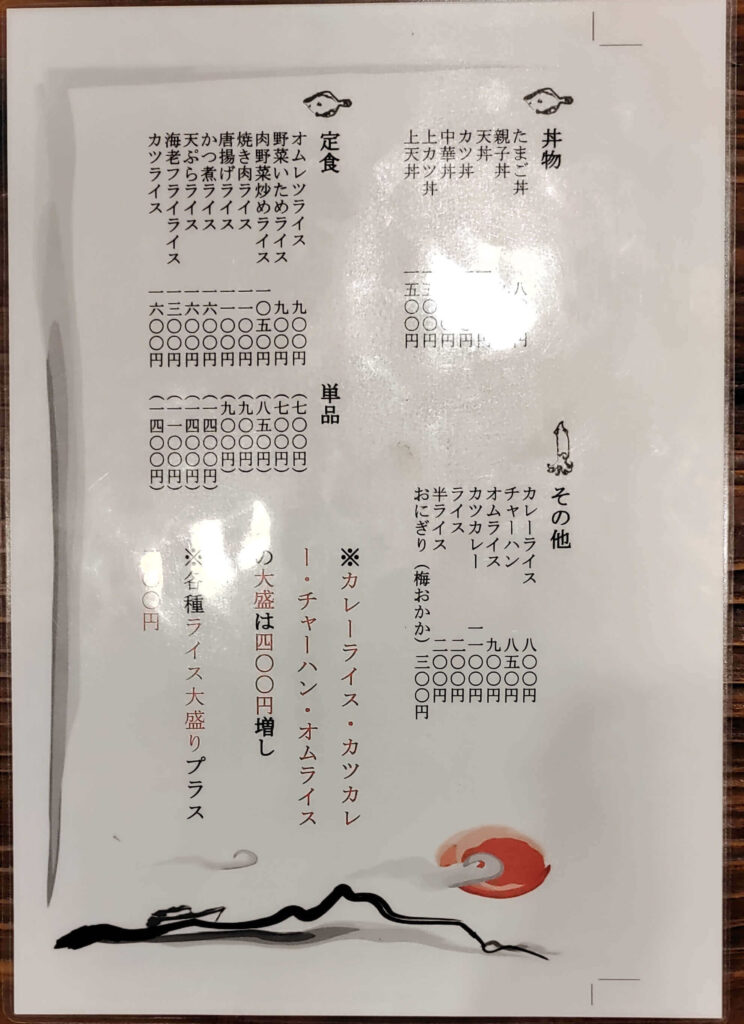 丼物
たまご丼
親子丼
天丼
カツ丼
中華丼
上カツ丼
上天丼 一五〇〇円
その他
カレーライス 八〇〇円
チャーハン 八五〇円
オムライス 九〇〇円
カツカレー 一一〇〇円
ライス 二〇〇円
半ライス 二〇〇円
おにぎり（梅おかか） 三〇〇円
定食 単品
オムレツライス 九〇〇円 （七〇〇円）
野菜いためライス 九〇〇円 （七〇〇円）
肉野菜炒めライス 一〇五〇円 （八五〇円）
焼き肉ライス 一一〇〇円 （九〇〇円）
唐揚げライス 一一〇〇円 （九〇〇円）
かつ煮ライス 一六〇〇円 （一四〇〇円）
天ぷらライス 一六〇〇円 （一四〇〇円）
海老フライライス 一三〇〇円 （一一〇〇円）
カツライス 一六〇〇円 （一四〇〇円）
※カレーライス・カツカレ
ー・チャーハン・オムライス
の大盛は四〇〇円増し
※各種ライス大盛りプラス
〇〇円